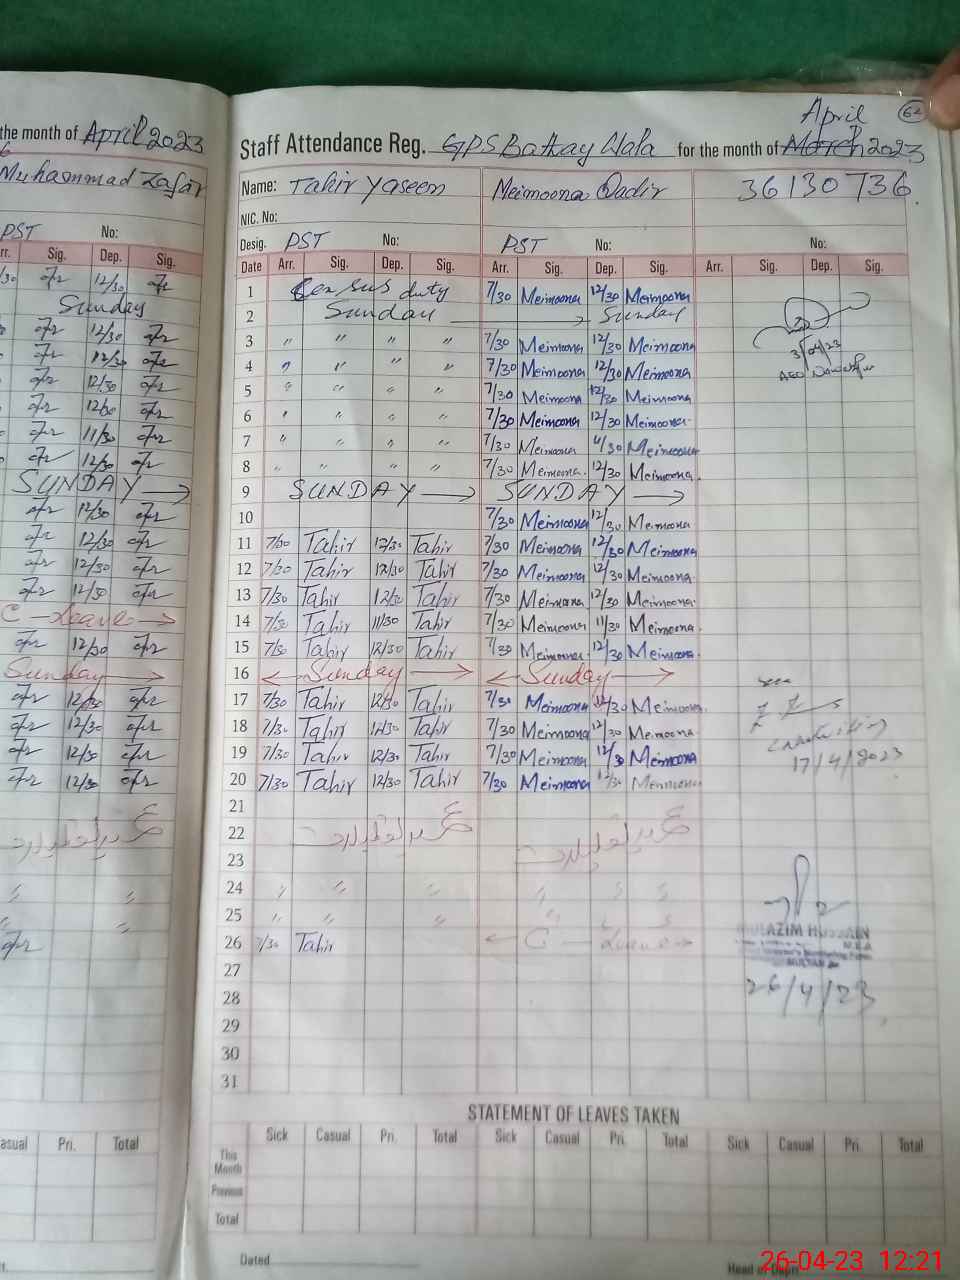 the month of April 2023
Muhammad Zafar
PST No:
Arr. Sig. Dep. Sig.
12/30
Sunday
12/30
12/30
12/30
12/30
11/30
12/30
SUNDAY
12/30
12/30
12/30
12/30
C - Leave
12/30
Sunday
12/30
12/30
12/30
12/30
Casual Pri. Total
April 62
Staff Attendance Reg. GPS Battay Wala for the month of March 2023
Name: Tahir Yaseen Meimoona Qadir 36130736
NIC. No:
Desig. PST No: PST No: No:
Date Arr. Sig. Dep. Sig. Arr. Sig. Dep. Sig. Arr. Sig. Dep. Sig.
1 Census duty 7/30 Meimoona 12/30 Meimoona
2 Sunday Sunday
3 " " " " 7/30 Meimoona 12/30 Meimoona
4 " " " " 7/30 Meimoona 12/30 Meimoona
5 " " " " 7/30 Meimoona 12/30 Meimoona
6 " " " " 7/30 Meimoona 12/30 Meimoona
7 " " " " 7/30 Meimoona 11/30 Meimoona
8 " " " " 7/30 Meimoona 12/30 Meimoona
9 SUNDAY SUNDAY
10 7/30 Meimoona 12/30 Meimoona
11 7/30 Tahir 12/30 Tahir 7/30 Meimoona 12/30 Meimoona
12 7/30 Tahir 12/30 Tahir 7/30 Meimoona 12/30 Meimoona
13 7/30 Tahir 12/30 Tahir 7/30 Meimoona 12/30 Meimoona
14 7/30 Tahir 11/30 Tahir 7/30 Meimoona 11/30 Meimoona
15 7/30 Tahir 12/30 Tahir 7/30 Meimoona 12/30 Meimoona
16 Sunday Sunday
17 7/30 Tahir 12/30 Tahir 7/30 Meimoona 12/30 Meimoona
18 7/30 Tahir 12/30 Tahir 7/30 Meimoona 12/30 Meimoona
19 7/30 Tahir 12/30 Tahir 7/30 Meimoona 12/30 Meimoona
20 7/30 Tahir 12/30 Tahir 7/30 Meimoona 12/30 Meimoona
21
22
23
24 " " " " " "
25 " " " " " "
26 7/30 Tahir C - Leave
27
28
29
30
31
3/04/23
AEO
17/4/2023
MULAZIM HUSSAIN
M.E.A
MULTAN
26/4/23
STATEMENT OF LEAVES TAKEN
Sick Casual Pri. Total Sick Casual Pri. Total Sick Casual Pri. Total
This Month
Previous
Total
Dated Head of Deptt.
26-04-23 12:21